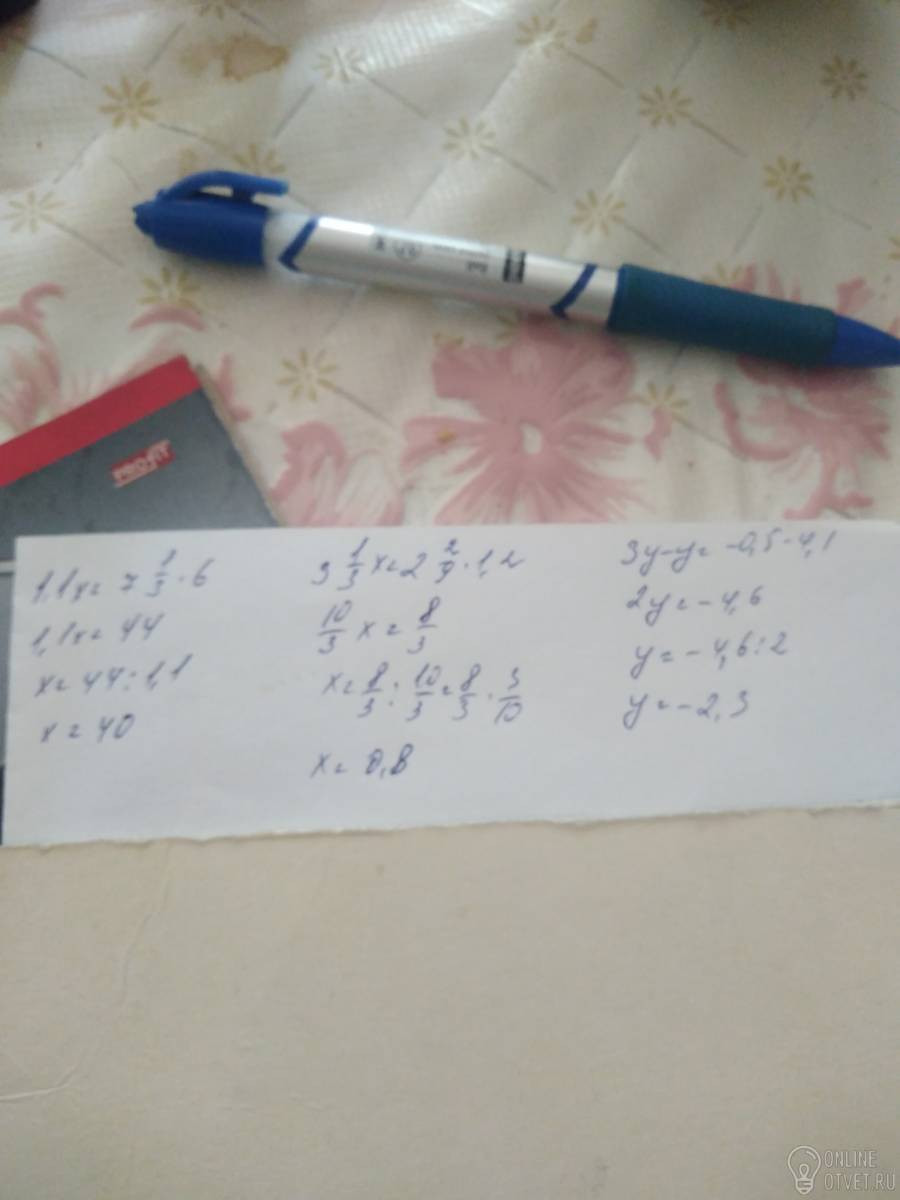 PROFIT
1,1x = 7 1/3 · 6
1,1x = 44
x = 44 : 1,1
x = 40
3 1/3 x = 2 2/9 · 1,2
10/3 x = 8/3
x = 8/3 : 10/3 = 8/3 · 3/10
x = 0,8
3y - y = -0,5 - 4,1
2y = -4,6
y = -4,6 : 2
y = -2,3
ONLINE
OTVET.RU